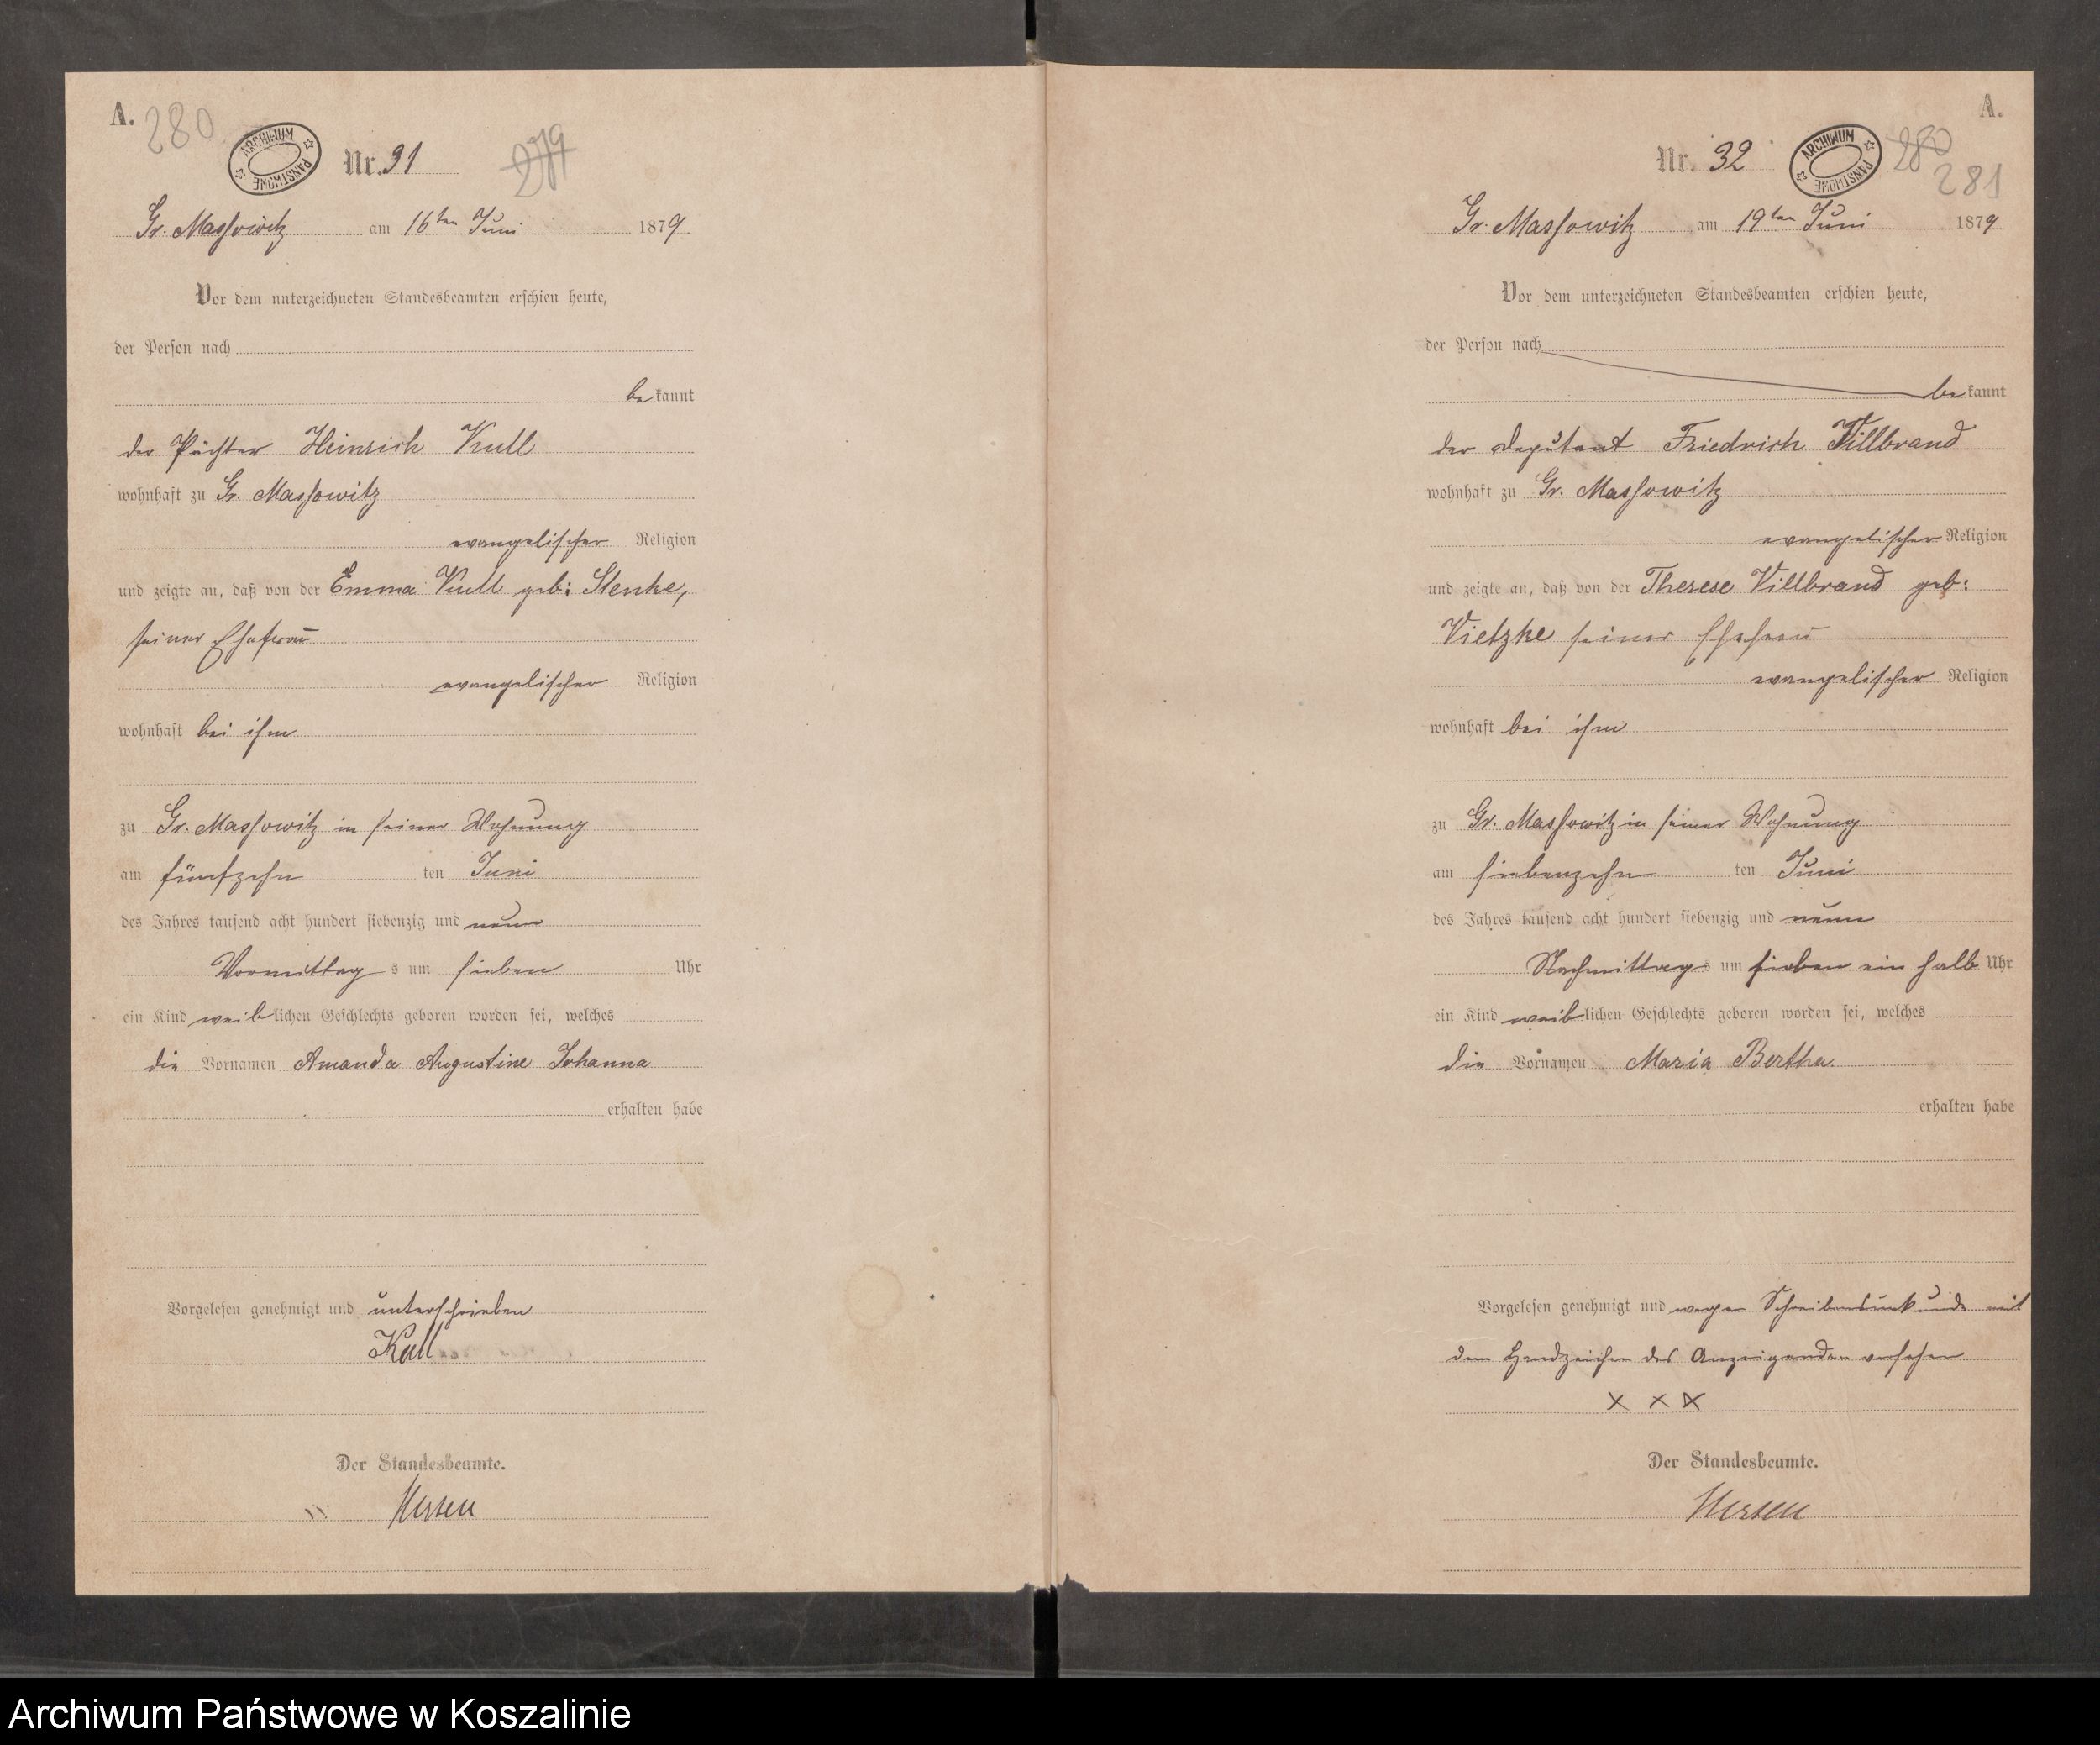 A. 280
ARCHIWUM PAŃSTWOWE
Nr. 31
279
Gr. Massowitz am 16ten Juni 1879.
Vor dem unterzeichneten Standesbeamten erschien heute,
der Person nach
bekannt
der Pächter Heinrich Kull
wohnhaft zu Gr. Massowitz
evangelischer Religion
und zeigte an, daß von der Emma Kull geb: Stenke,
seiner Ehefrau
evangelischer Religion
wohnhaft bei ihm
zu Gr. Massowitz in seiner Wohnung
am fünfzehn ten Juni
des Jahres tausend acht hundert siebenzig und neun
Vormittag s um sieben Uhr
ein Kind weiblichen Geschlechts geboren worden sei, welches
die Vornamen Amanda Augustine Johanna
erhalten habe
Vorgelesen genehmigt und unterschrieben
Kull
Der Standesbeamte.
A.
Nr. 32
ARCHIWUM PAŃSTWOWE
280
281
Gr. Massowitz am 19ten Juni 1879
Vor dem unterzeichneten Standesbeamten erschien heute,
der Person nach
bekannt
der Deputant Friedrich Villbrand
wohnhaft zu Gr. Massowitz
evangelischer Religion
und zeigte an, daß von der Therese Villbrand geb:
Vietzke seiner Ehefrau
evangelischer Religion
wohnhaft bei ihm
zu Gr. Massowitz in seiner Wohnung
am siebenzehn ten Juni
des Jahres tausend acht hundert siebenzig und neun
Nachmittags um sieben ein halb Uhr
ein Kind weiblichen Geschlechts geboren worden sei, welches
die Vornamen Maria Bertha
erhalten habe
Vorgelesen genehmigt und wegen Schreibensunkunde mit
dem Handzeichen des Anzeigenden versehen
X X X
Der Standesbeamte.
Archiwum Państwowe w Koszalinie